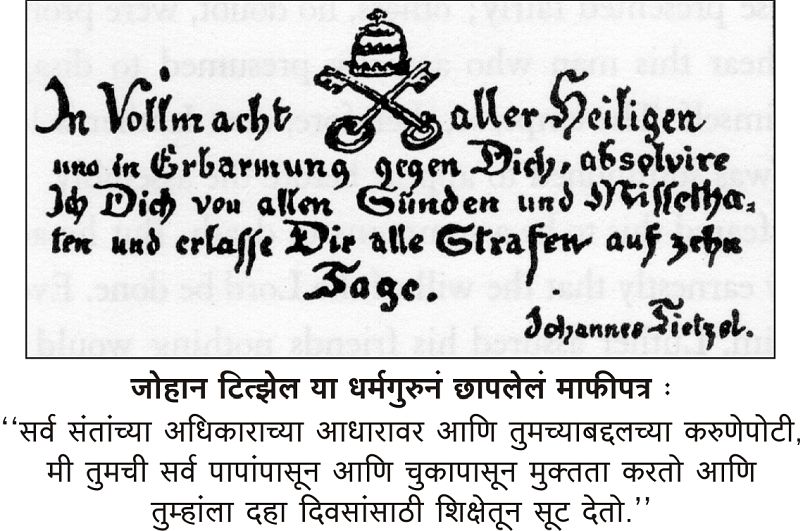 In Vollmacht aller Heiligen
und in Erbarmung gegen Dich, absolvire
Ich Dich von allen Sünden und Missetha-
ten und erlasse Dir alle Strafen auf zehn
Tage.
Johannes Tietzel.
जोहान टित्झेल या धर्मगुरुनं छापलेलं माफीपत्र :
‘‘सर्व संतांच्या अधिकाराच्या आधारावर आणि तुमच्याबद्दलच्या करुणेपोटी,
मी तुमची सर्व पापांपासून आणि चुकापासून मुक्तता करतो आणि
तुम्हांला दहा दिवसांसाठी शिक्षेतून सूट देतो.’’